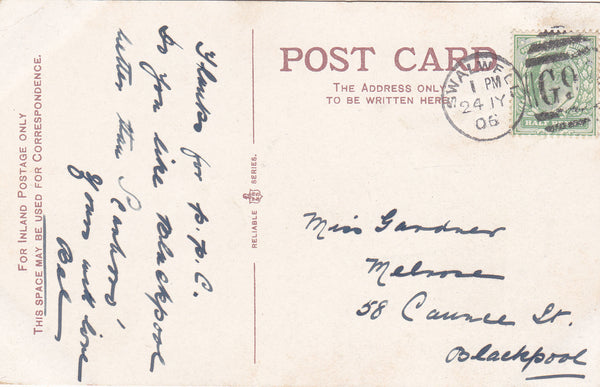 FOR INLAND POSTAGE ONLY
THIS SPACE MAY BE USED FOR CORRESPONDENCE.
Thanks for p.p.c.
Do you like Blackpool
better than Scarboro'
Yours with love
Bel
RELIABLE SERIES.
POST CARD
THE ADDRESS ONLY
TO BE WRITTEN HERE
SWALWELL
1 PM
24 JY
06
G9
HALFPENNY
Miss Gardner
Melrose
58 Caunce St.
Blackpool